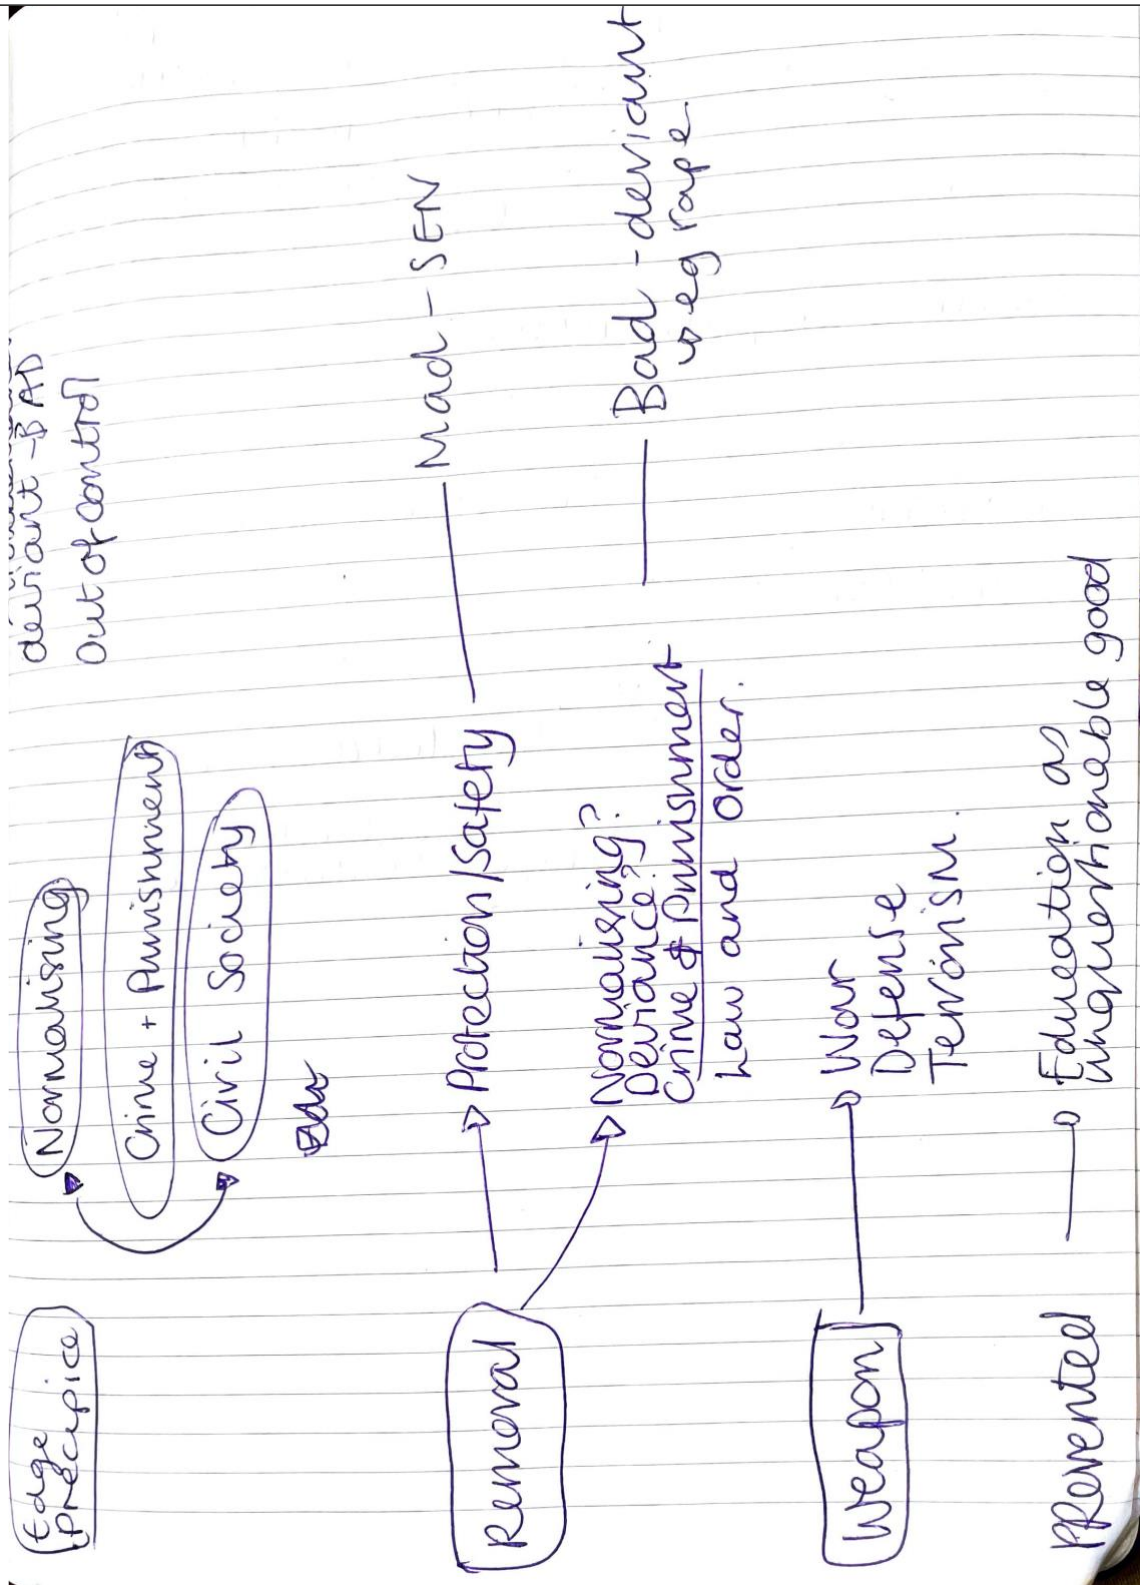 Edge
precipice
Normalising
Crime + Punishment
Civil Society
deviant - BAD
Out of control
Removal
Protection/Safety
Mad - SEN
Normalising?
Deviance?
Crime & Punishment
Law and Order.
Bad - deviant
eg rape
Weapon
War
Defense
Terrorism.
Prevented
Education as
unquestionable good